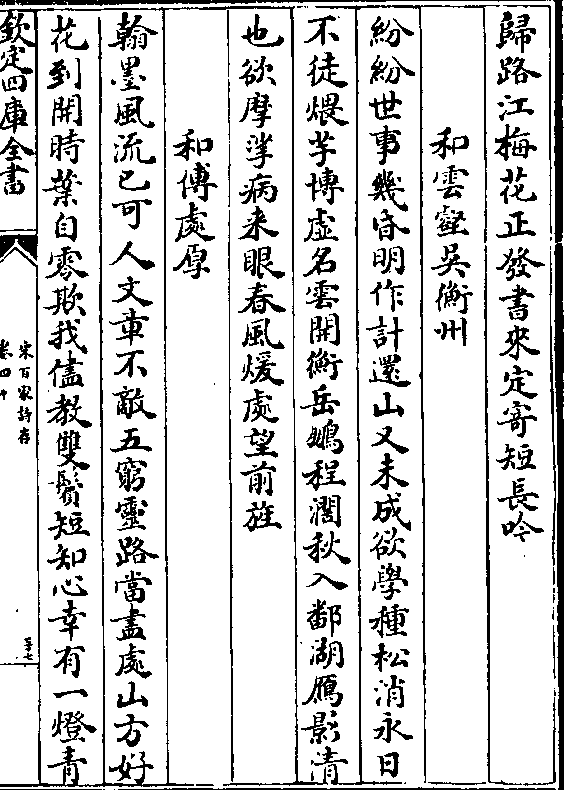 歸路江梅花正發書來定寄短長吟
和雲壑吳衡州
紛紛世事幾昏明作計還山又未成欲學種松消永日
不徒煨芋博虛名雲開衡岳鵰程濶秋入鄱湖鴈影清
也欲摩挲病来眼春風煖處望前旌
和傅處厚
翰墨風流已可人文章不敵五窮靈路當盡處山方好
花到開時葉自零欺我儘教雙鬢短知心幸有一燈青
欽定四庫全書
宋百家詩存
卷四十